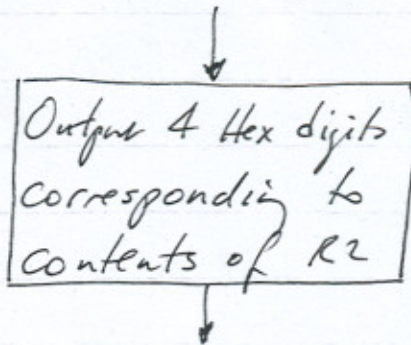 Output 4 Hex digits
corresponding to
contents of R2